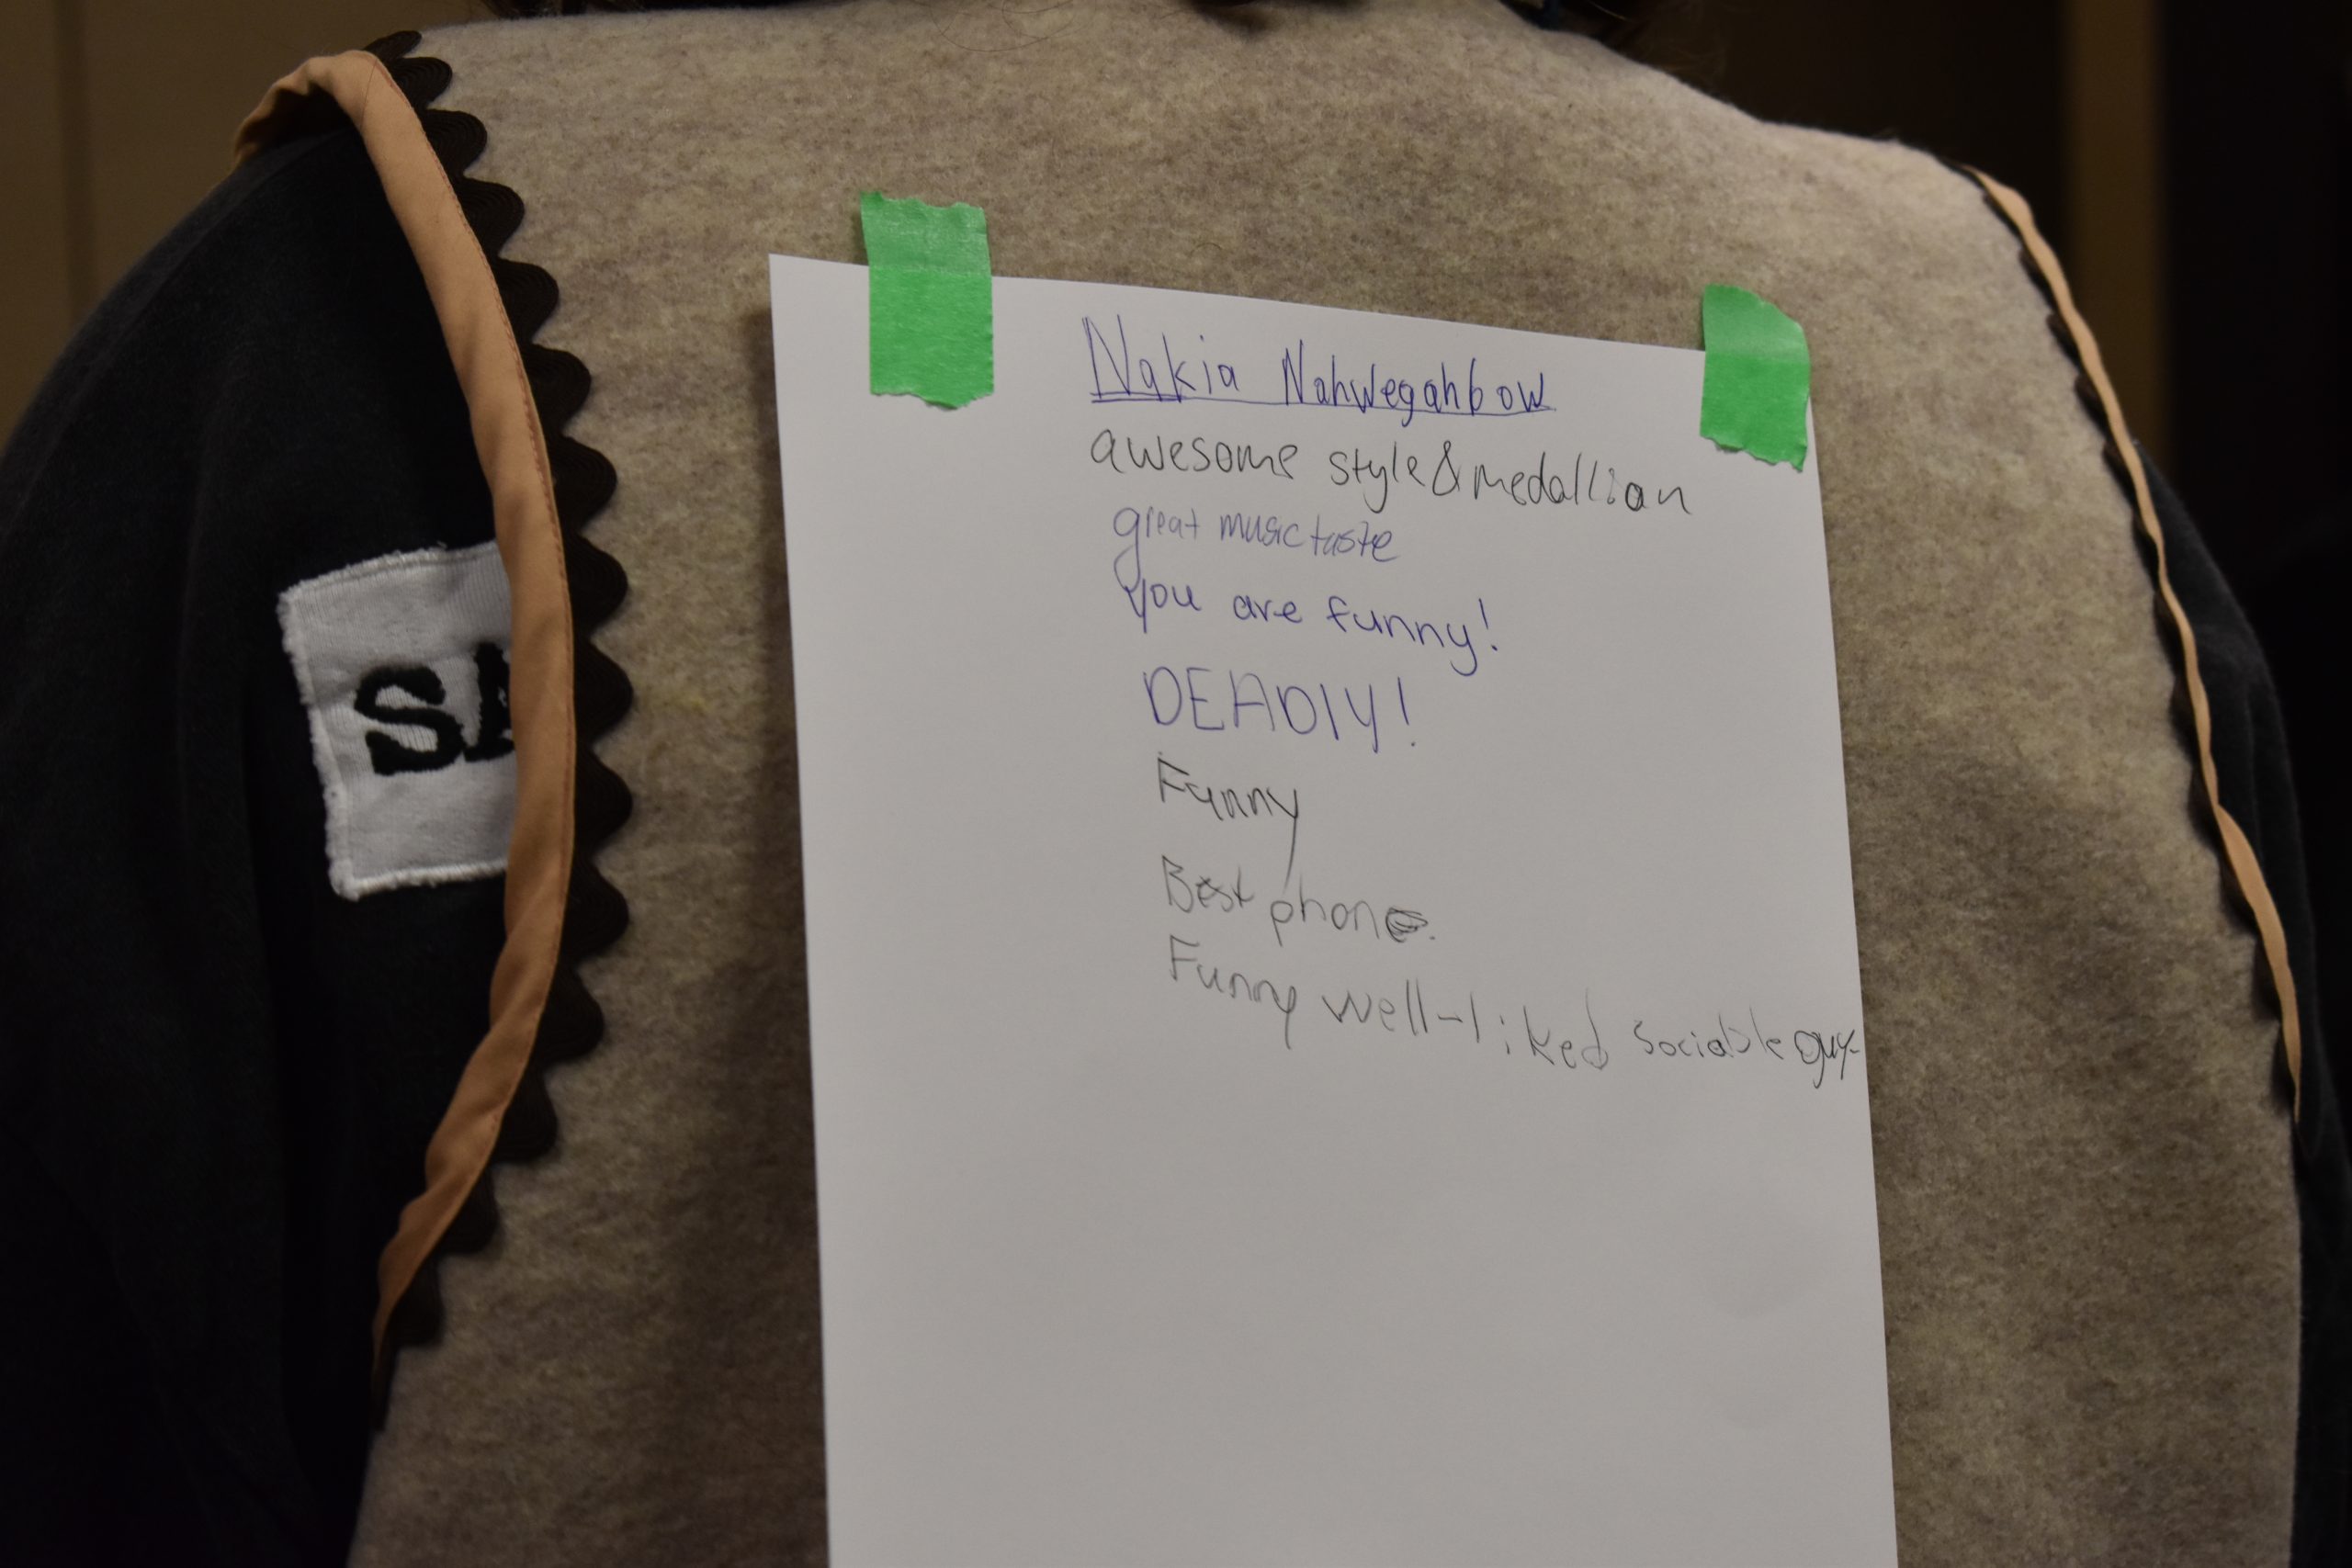 SA
Nakia Nahwegahbow
awesome style & medallian
great music taste
you are funny!
DEADLY!
Funny
Best phone.
Funny well-liked sociable guy